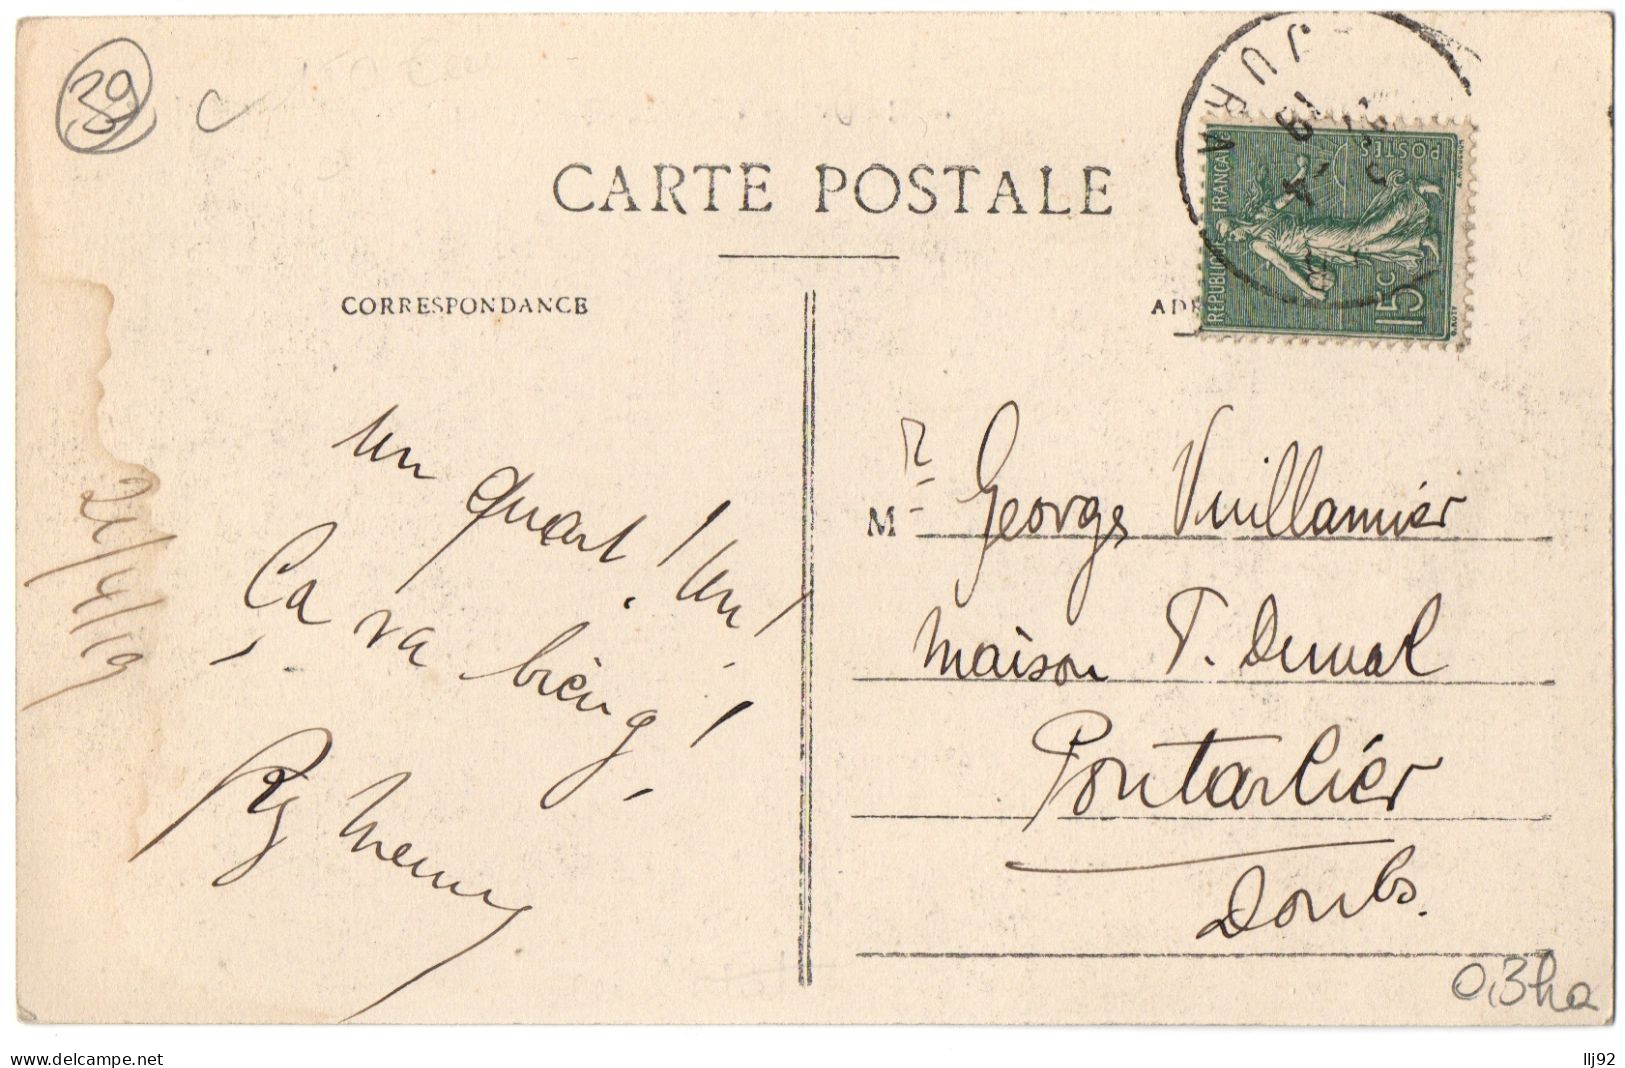 39
CARTE POSTALE
CORRESPONDANCE
JURA
REPUBLIQUE FRANÇAISE
POSTES
15c
21/4/19
un quart ! un !
Ça va bien
Mr Georges Vuillamier
maison T. Duval
Pontarlier
Doubs.
0,3ha
www.delcampe.net
llj92